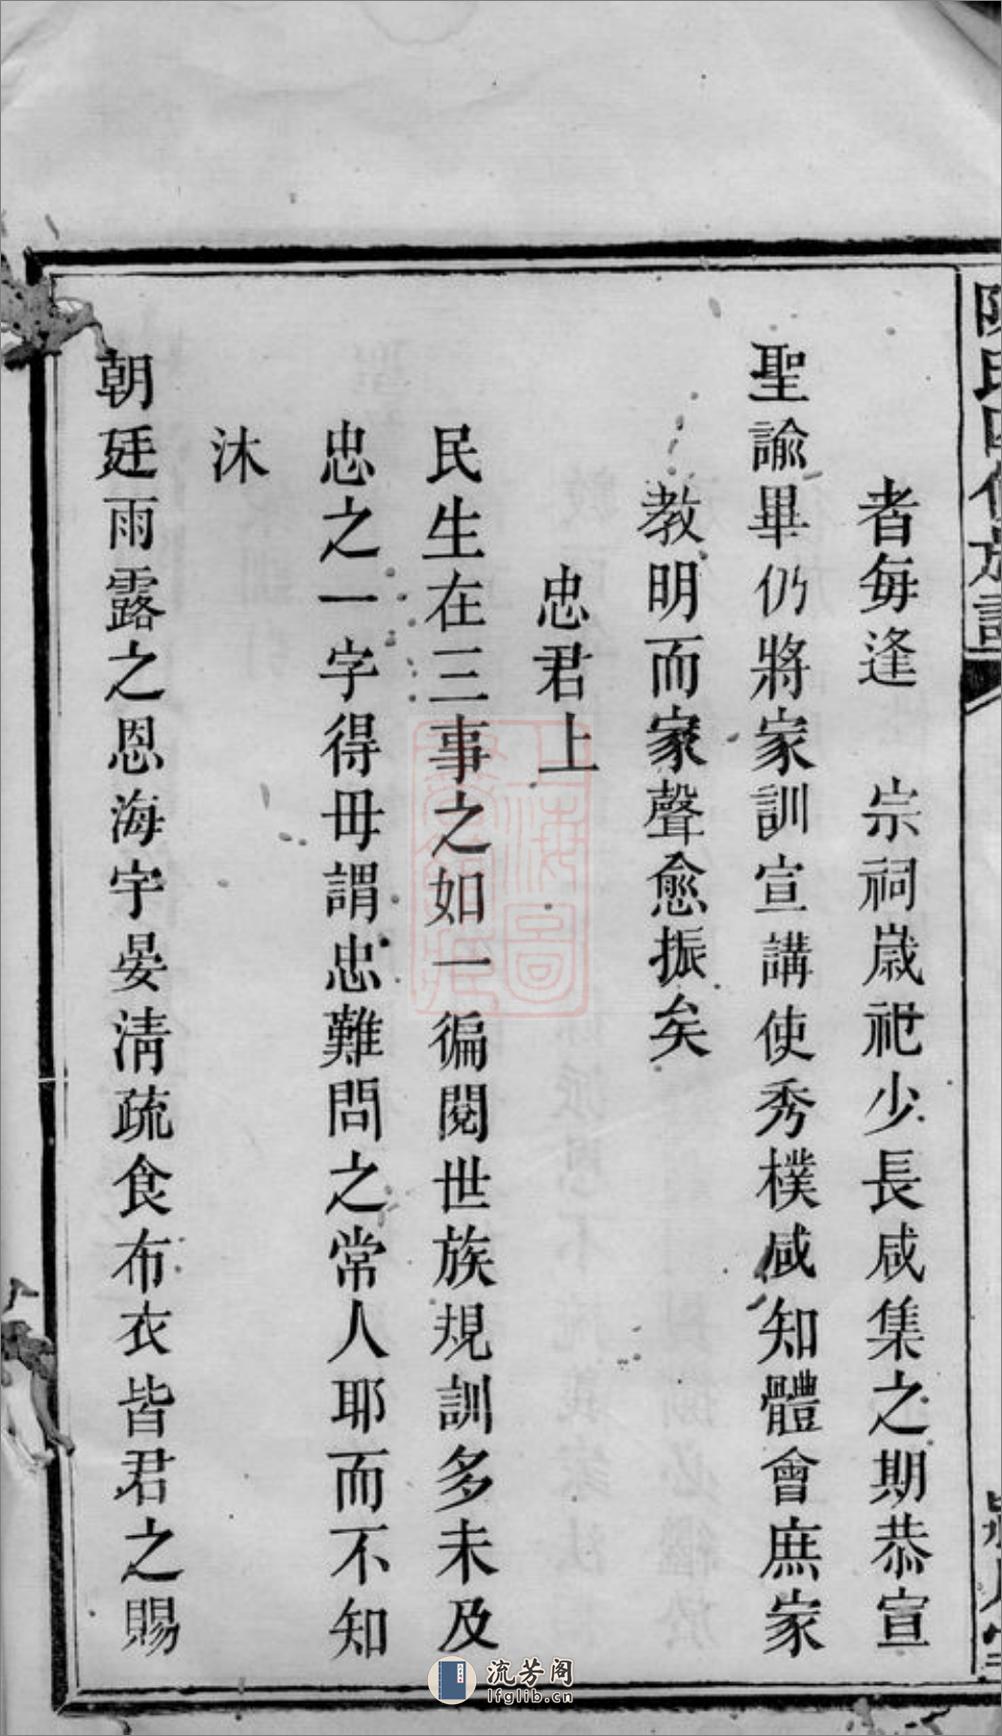 者每逢　宗祠歲祀少長咸集之期恭宣
聖諭畢仍將家訓宣講使秀樸咸知體會庶家
教明而家聲愈振矣
忠君上
民生在三事之如一徧閱世族規訓多未及
忠之一字得毋謂忠難問之常人耶而不知
沐
朝廷雨露之恩海宇晏清疏食布衣皆君之賜
流芳阁
lfglib.cn